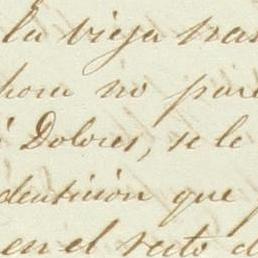 la vieja
hora no
Dolores, se le
dentición que
en el resto d